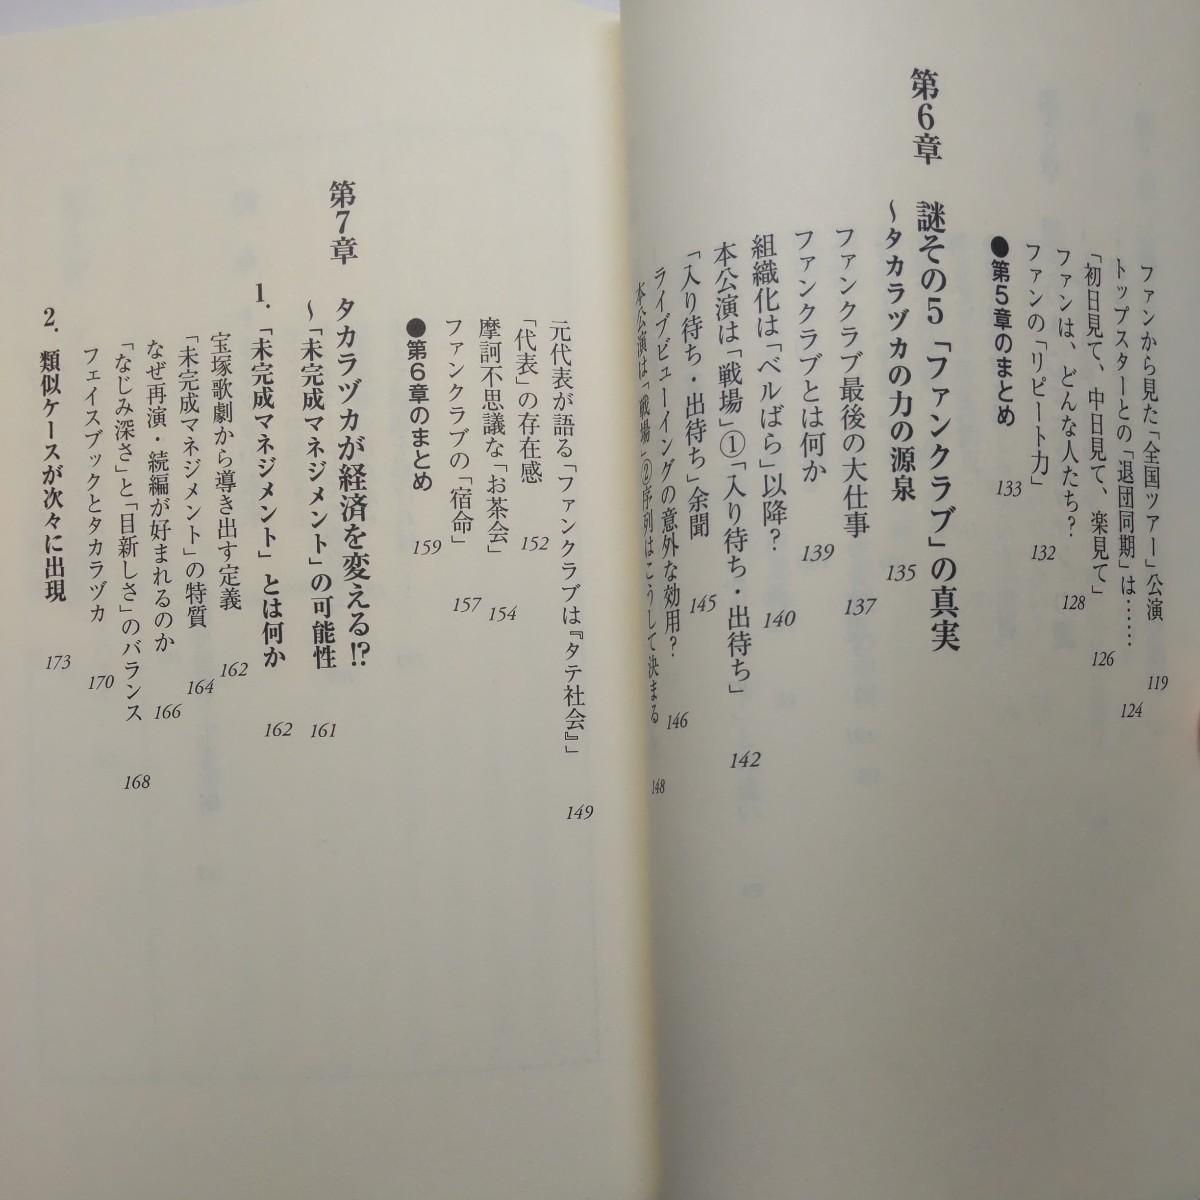 ファンから見た「全国ツアー」公演 119
トップスターとの「退団同期」は…… 124
「初日見て、中日見て、楽見て」 126
ファンは、どんな人たち？ 128
ファンの「リピート力」 132
●第5章のまとめ 133
第6章 謎その5「ファンクラブ」の真実
～タカラヅカの力の源泉 135
ファンクラブ最後の大仕事 137
ファンクラブとは何か 139
組織化は「ベルばら」以降？ 140
本公演は「戦場」①「入り待ち・出待ち」 142
「入り待ち・出待ち」余聞 145
ライブビューイングの意外な効用？ 146
本公演は「戦場」②序列はこうして決まる 148
元代表が語る「ファンクラブは『タテ社会』」 149
「代表」の存在感 152
摩訶不思議な「お茶会」 154
ファンクラブの「宿命」 157
●第6章のまとめ 159
第7章 タカラヅカが経済を変える!?
～「未完成マネジメント」の可能性 161
1.「未完成マネジメント」とは何か 162
宝塚歌劇から導き出す定義 162
「未完成マネジメント」の特質 164
なぜ再演・続編が好まれるのか 166
「なじみ深さ」と「目新しさ」のバランス 168
フェイスブックとタカラヅカ 170
2. 類似ケースが次々に出現 173